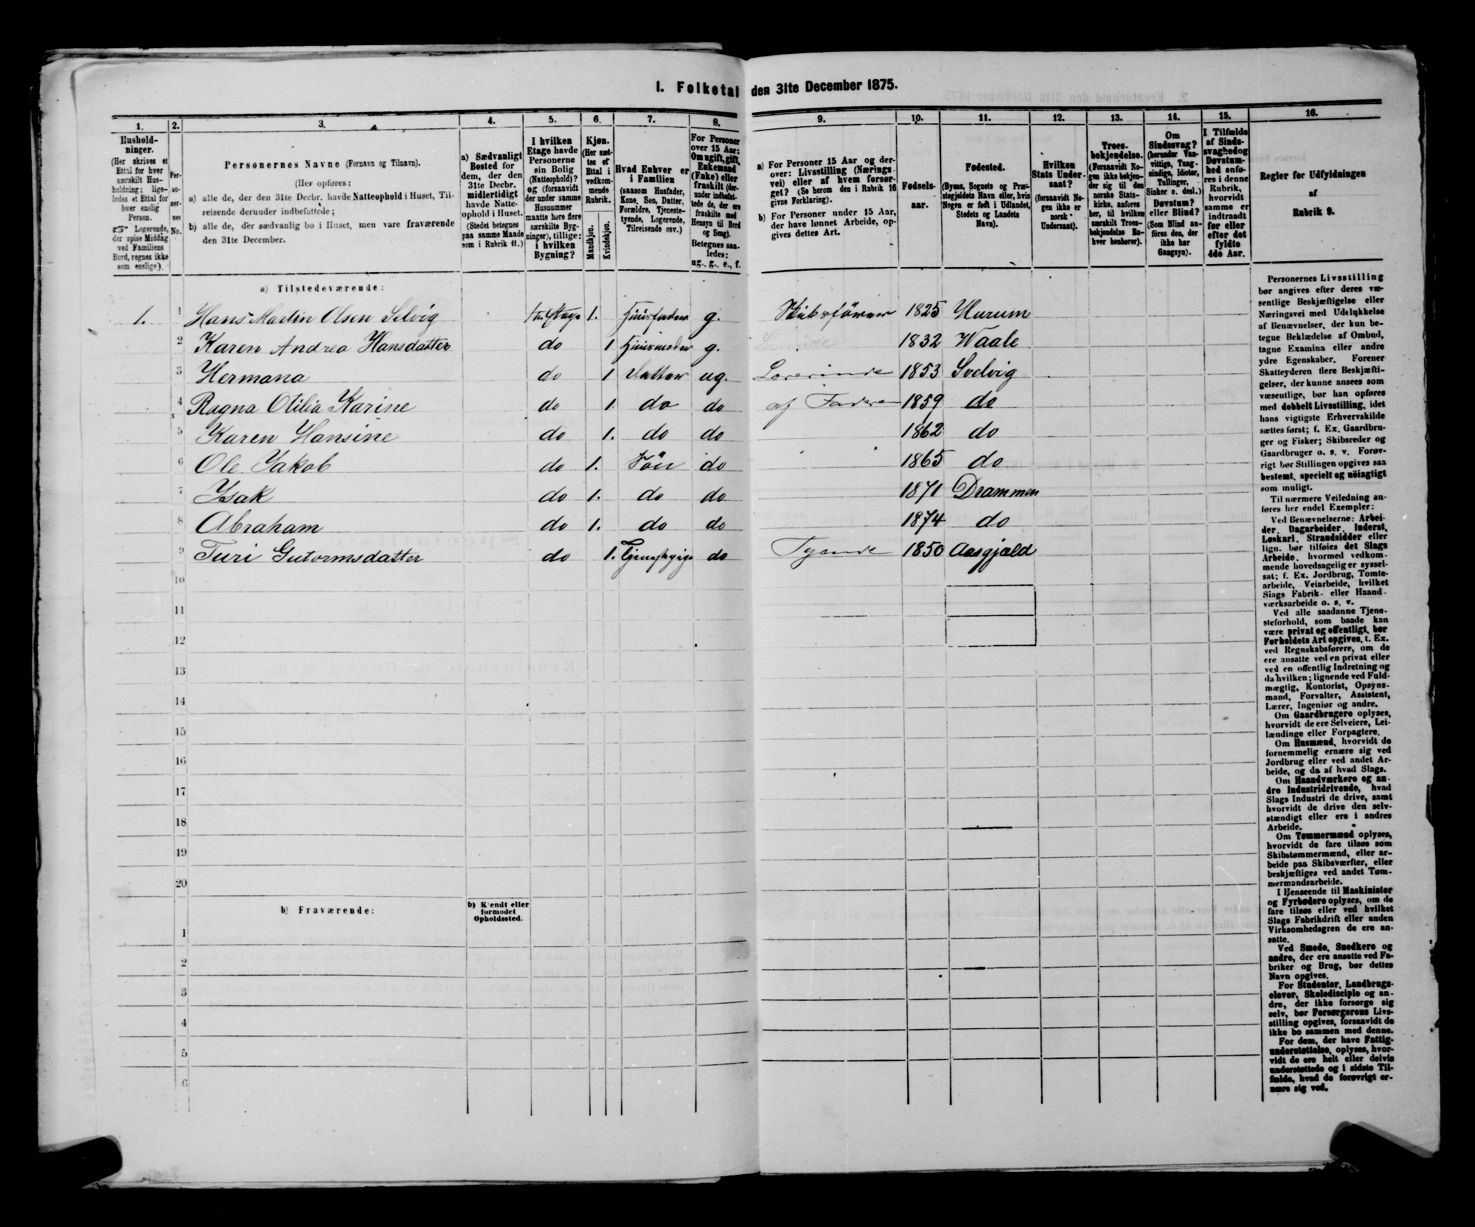 I. Folketal den 31te December 1875.
1. 2. 3. 4. 5. 6. 7. 8. 9. 10. 11. 12. 13. 14. 15. 16.
Hushold-
ninger.
(Her skrives et
Ettal for hver
særskilt Hus-
holdning; lige-
ledes et Ettal for
hver enslig
Person.
☞ Logerende,
der spise Middag
ved Familiens
Bord, regnes ikke
som enslige).
Per-
so-
ner-
nes
No.
Personernes Navne (Fornavn og Tilnavn).
(Her opføres:
a) alle de, der den 31te Decbr. havde Natteophold i Huset, Til-
reisende derunder indbefattede;
b) alle de, der sædvanlig bo i Huset, men vare fraværende
den 31te December.
a) Sædvanligt
Bosted for
dem, der den
31te Decbr.
midlertidigt
havde Natte-
ophold i Huset.
(Stedet betegnes
paa samme Maade
som i Rubrik 11.)
I hvilken
Etage havde
Personerne
sin Bolig
(Natteophold)?
og (forsaavidt
der under samme
Husnummer
maatte høre flere
særskilte Byg-
ninger), tillige:
i hvilken
Bygning?
Kjøn.
(Her sæt-
tes et
Ettal i
vedkom-
mende
Rubrik.
Mandkjøn.
Kvindekjøn.
Hvad Enhver er
i Familien
(saasom Husfader,
Kone, Søn, Datter,
Forældre, Tjeneste-
tyende, Logerende,
Tilreisende osv.)
For Personer
over 15 Aar:
Om ugift, gift,
Enkemand
(Enke) eller
fraskilt (der-
under indbefat-
tede de, der ere
fraskilte med
Hensyn til Bord
og Seng).
Betegnes saa-
ledes:
ug., g., e., f.
a) For Personer 15 Aar og der-
over: Livsstilling (Nærings-
vei) eller af hvem forsør-
get? (Se herom den i Rubrik 16
givne Forklaring).
b) For Personer under 15 Aar,
der have lønnet Arbeide, op-
gives dettes Art.
Fødsels-
aar.
Fødested.
(Byens, Sognets og Præ-
stegjeldets Navn eller, hvis
Nogen er født i Udlandet,
Stedets og Landets
Navn).
Hvilken
Stats Under-
saat?
(forsaavidt No-
gen ikke er
norsk
Undersaat).
Troes-
bekjendelse.
(Forsaavidt No-
gen ikke bekjen-
der sig til den
norske Stats-
kirke, anføres
her, til hvilken
særskilt Troes-
bekjendelse En-
hver henhører).
Om
Sindssvag?
(herunder Van-
vittige, Tung-
sindige, Idioter,
Tullinger,
Sinker o. desl.)
Døvstum?
eller Blind?
(Som Blind an-
føres den, der
ikke har
Gangsyn).
I Tilfælde
af Sinds-
svaghed og
Døvstum-
hed anfø-
res i denne
Rubrik,
hvorvidt
samme er
indtraadt
før eller
efter det
fyldte
4de Aar.
Regler for Udfyldningen
af
Rubrik 9.
a) Tilstedeværende:
1. 1 Hans Martin Olsen Selvig 1ste Etage 1. Huusfader g. Skibsfører 1825 Hurum
2 Karen Andrea Hansdatter do 1 Huusmoder g. 1832 Waale
3 Hermana do 1 Datter ug. Lærerinde 1853 Svelvig
4 Ragna Otilia Karine do 1. do do af Faderen 1859 do
5 Karen Hansine do 1. do do 1862 do
6 Ole Jakob do 1. Søn do 1865 do
7 Isak do 1. do do 1871 Drammen
8 Abraham do 1. do do 1874 do
9 Turi Gutormsdatter do 1. Tjenestepige do Tyende 1850 Aasgjæld
10
11
12
13
14
15
16
17
18
19
20
b) Fraværende:
b) Kjendt eller
formodet
Opholdssted.
1
2
3
4
5
6
Personernes Livsstilling
bør angives efter deres væ-
sentlige Beskjæftigelse eller
Næringsvei med Udelukkelse
af Benævnelser, der kun be-
tegne Beklædelse af Ombud,
tagne Examina eller andre
ydre Egenskaber. Forener
Skatteyderen flere Beskjæfti-
gelser, der kunne ansees som
væsentlige, bør han opføres
med dobbelt Livsstilling, idet
hans vigtigste Erhvervskilde
sættes først; f. Ex. Gaardbru-
ger og Fisker; Skibsreder og
Gaardbruger o. s. v. Forøv-
rigt bør Stillingen opgives saa
bestemt, specielt og nøiagtigt
som muligt.
Til nærmere Veiledning an-
føres her endel Exempler:
Ved Benævnelserne: Arbei-
der, Dagarbeider, Inderst,
Løskarl, Strandsidder eller
lign. bør tilføies det Slags
Arbeide, hvormed vedkom-
mende hovedsagelig er syssel-
sat; f. Ex. Jordbrug, Tomte-
arbeide, Veiarbeide, hvilket
Slags Fabrik- eller Haand-
værksarbeide o. s. v.
Ved alle saadanne Tjene-
steforhold, som baade kan
være privat og offentligt, bør
Forholdets Art opgives, t. Ex.
ved Regnskabsførere, om de
ere ansatte ved en privat eller
ved en offentlig Indretning og
da hvilken; lignende ved Fuld-
mægtig, Kontorist, Opsyns-
mand, Forvalter, Assistent,
Lærer, Ingeniør og andre.
Om Gaardbrugere oplyses,
hvorvidt de ere Selveiere, Lei-
lændinge eller Forpagtere.
Om Husmænd, hvorvidt de
fornemmelig ernære sig ved
Jordbrug eller ved andet Ar-
beide, og da af hvad Slags.
Om Haandværkere og an-
dre Industridrivende, hvad
Slags Industri de drive, samt
hvorvidt de drive den selv-
stændigt eller ere i andres
Arbeide.
Om Tømmermænd oplyses,
hvorvidt de fare tilsøs som
Skibstømmermænd, eller ar-
beide paa Skibsværfter, eller
beskjæftiges ved andet Tøm-
mermandsarbeide.
I Henseende til Maskinister
og Fyrbødere oplyses, om de
fare tilsøs eller ved hvilket
Slags Fabrikdrift eller anden
Virksomhedsgren de ere an-
satte.
Ved Smede, Snedkere og
andre, der ere ansatte ved Fa-
briker og Brug, bør dettes
Navn opgives.
For Studenter, Landbrugs-
elever, Skoledisciple og an-
dre, der ikke forsørge sig
selv, bør Forsørgerens Livs-
stilling opgives, forsaavidt de
ikke bo sammen med denne.
For dem, der have Fattig-
understøttelse, oplyses, hvor-
vidt de ere helt eller delvis
understøttede og i sidste Til-
fælde, hvad de forøvrigt er-
nære sig ved.